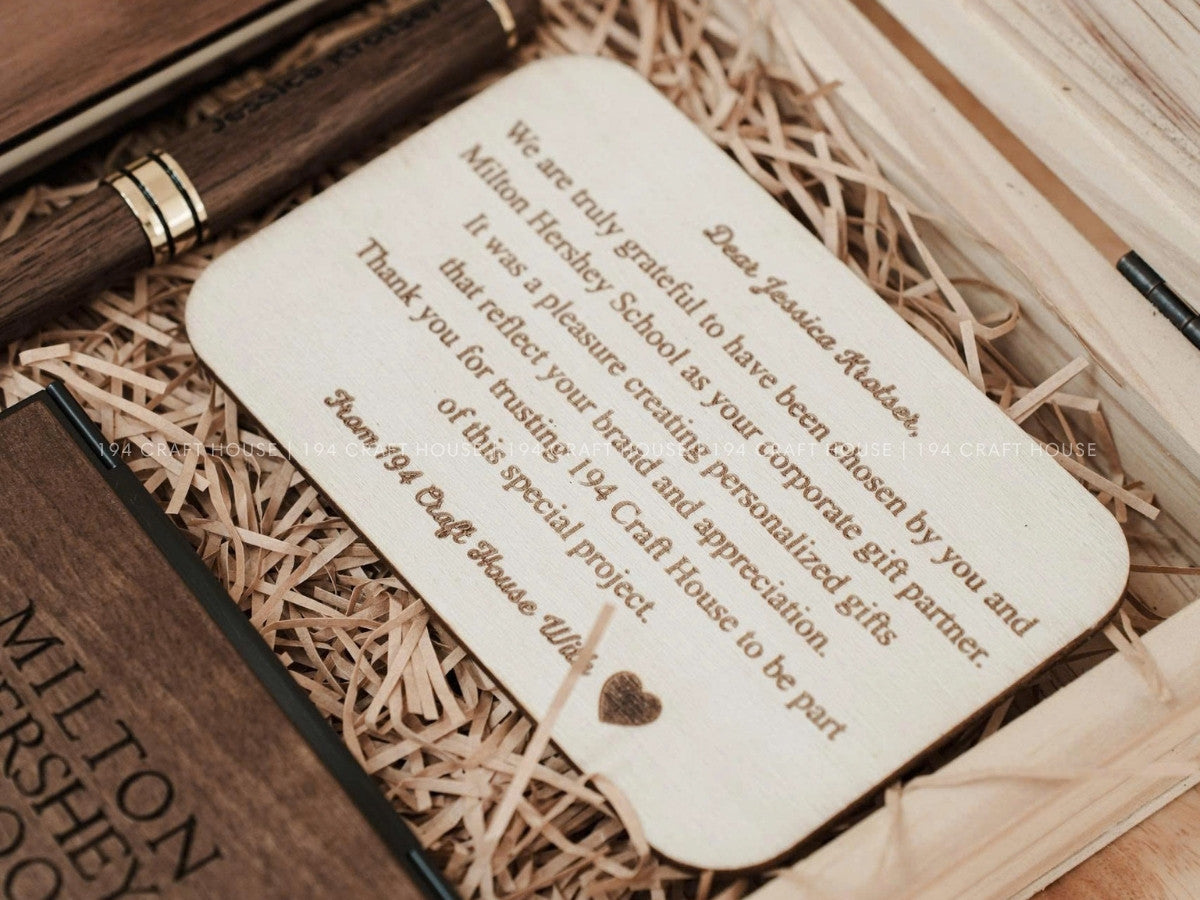 Jessica Krotser
Dear Jessica Krotser,
We are truly grateful to have been chosen by you and
Milton Hershey School as your corporate gift partner.
It was a pleasure creating personalized gifts
that reflect your brand and appreciation.
Thank you for trusting 194 Craft House to be part
of this special project.
From 194 Craft House With
194 CRAFT HOUSE | 194 CRAFT HOUSE | 194 CRAFT HOUSE | 194 CRAFT HOUSE | 194 CRAFT HOUSE
MILTON
ERSHEY
OO